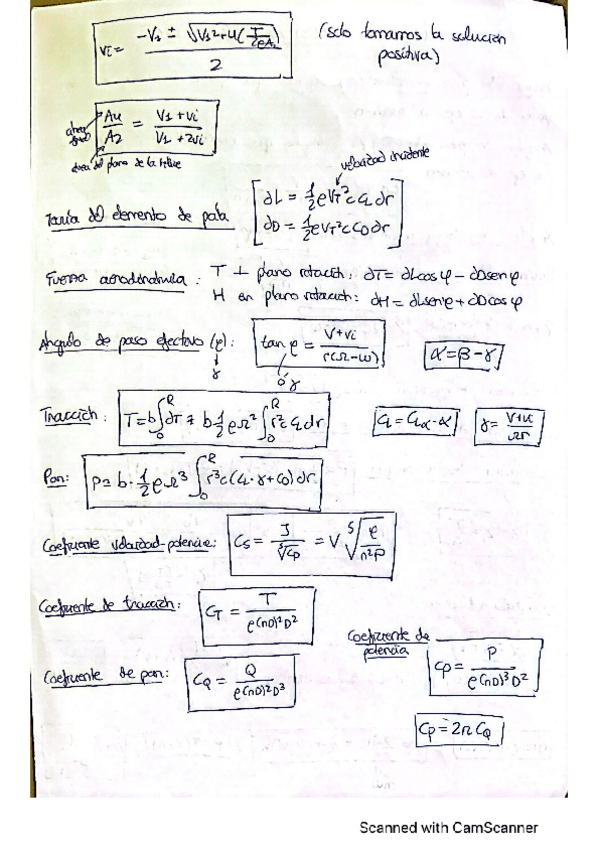 Vi = (-V1 ± √(V1²+4(T/2ρA))) / 2 (solo tomamos la solución positiva)
A4/A2 = (V1+Vi)/(V1+2Vi)
área del plano de la hélice
velocidad incidente
Teoría del elemento de pala [ dL = ½ρVT²c CL dr
dD = ½ρVT²c CD dr ]
Fuerza aerodinámica: T ⊥ plano rotación: dT = dLcosφ - dDsenφ
H en plano rotación: dH = dLsenφ + dDcosφ
Angulo de paso efectivo (φ): tanφ = (V+Vi)/(r(Ω-ω)) α=β-γ
γ ó γ
Tracción: T = b∫0^R dT = b½ρΩ²∫0^R r²c CL dr CL = CLα·α γ = (V+Vi)/Ωr
Par: P = b·½ρΩ³∫0^R r³c(CL·γ+CD)dr
Coeficiente velocidad-potencia: CS = J/⁵√CP = V ⁵√(ρ/n²P)
Coeficiente de tracción: CT = T/(ρ(nD)²D²)
Coeficiente de potencia CP = P/(ρ(nD)³D²)
Coeficiente de par: CQ = Q/(ρ(nD)²D³)
CP = 2π CQ
Scanned with CamScanner